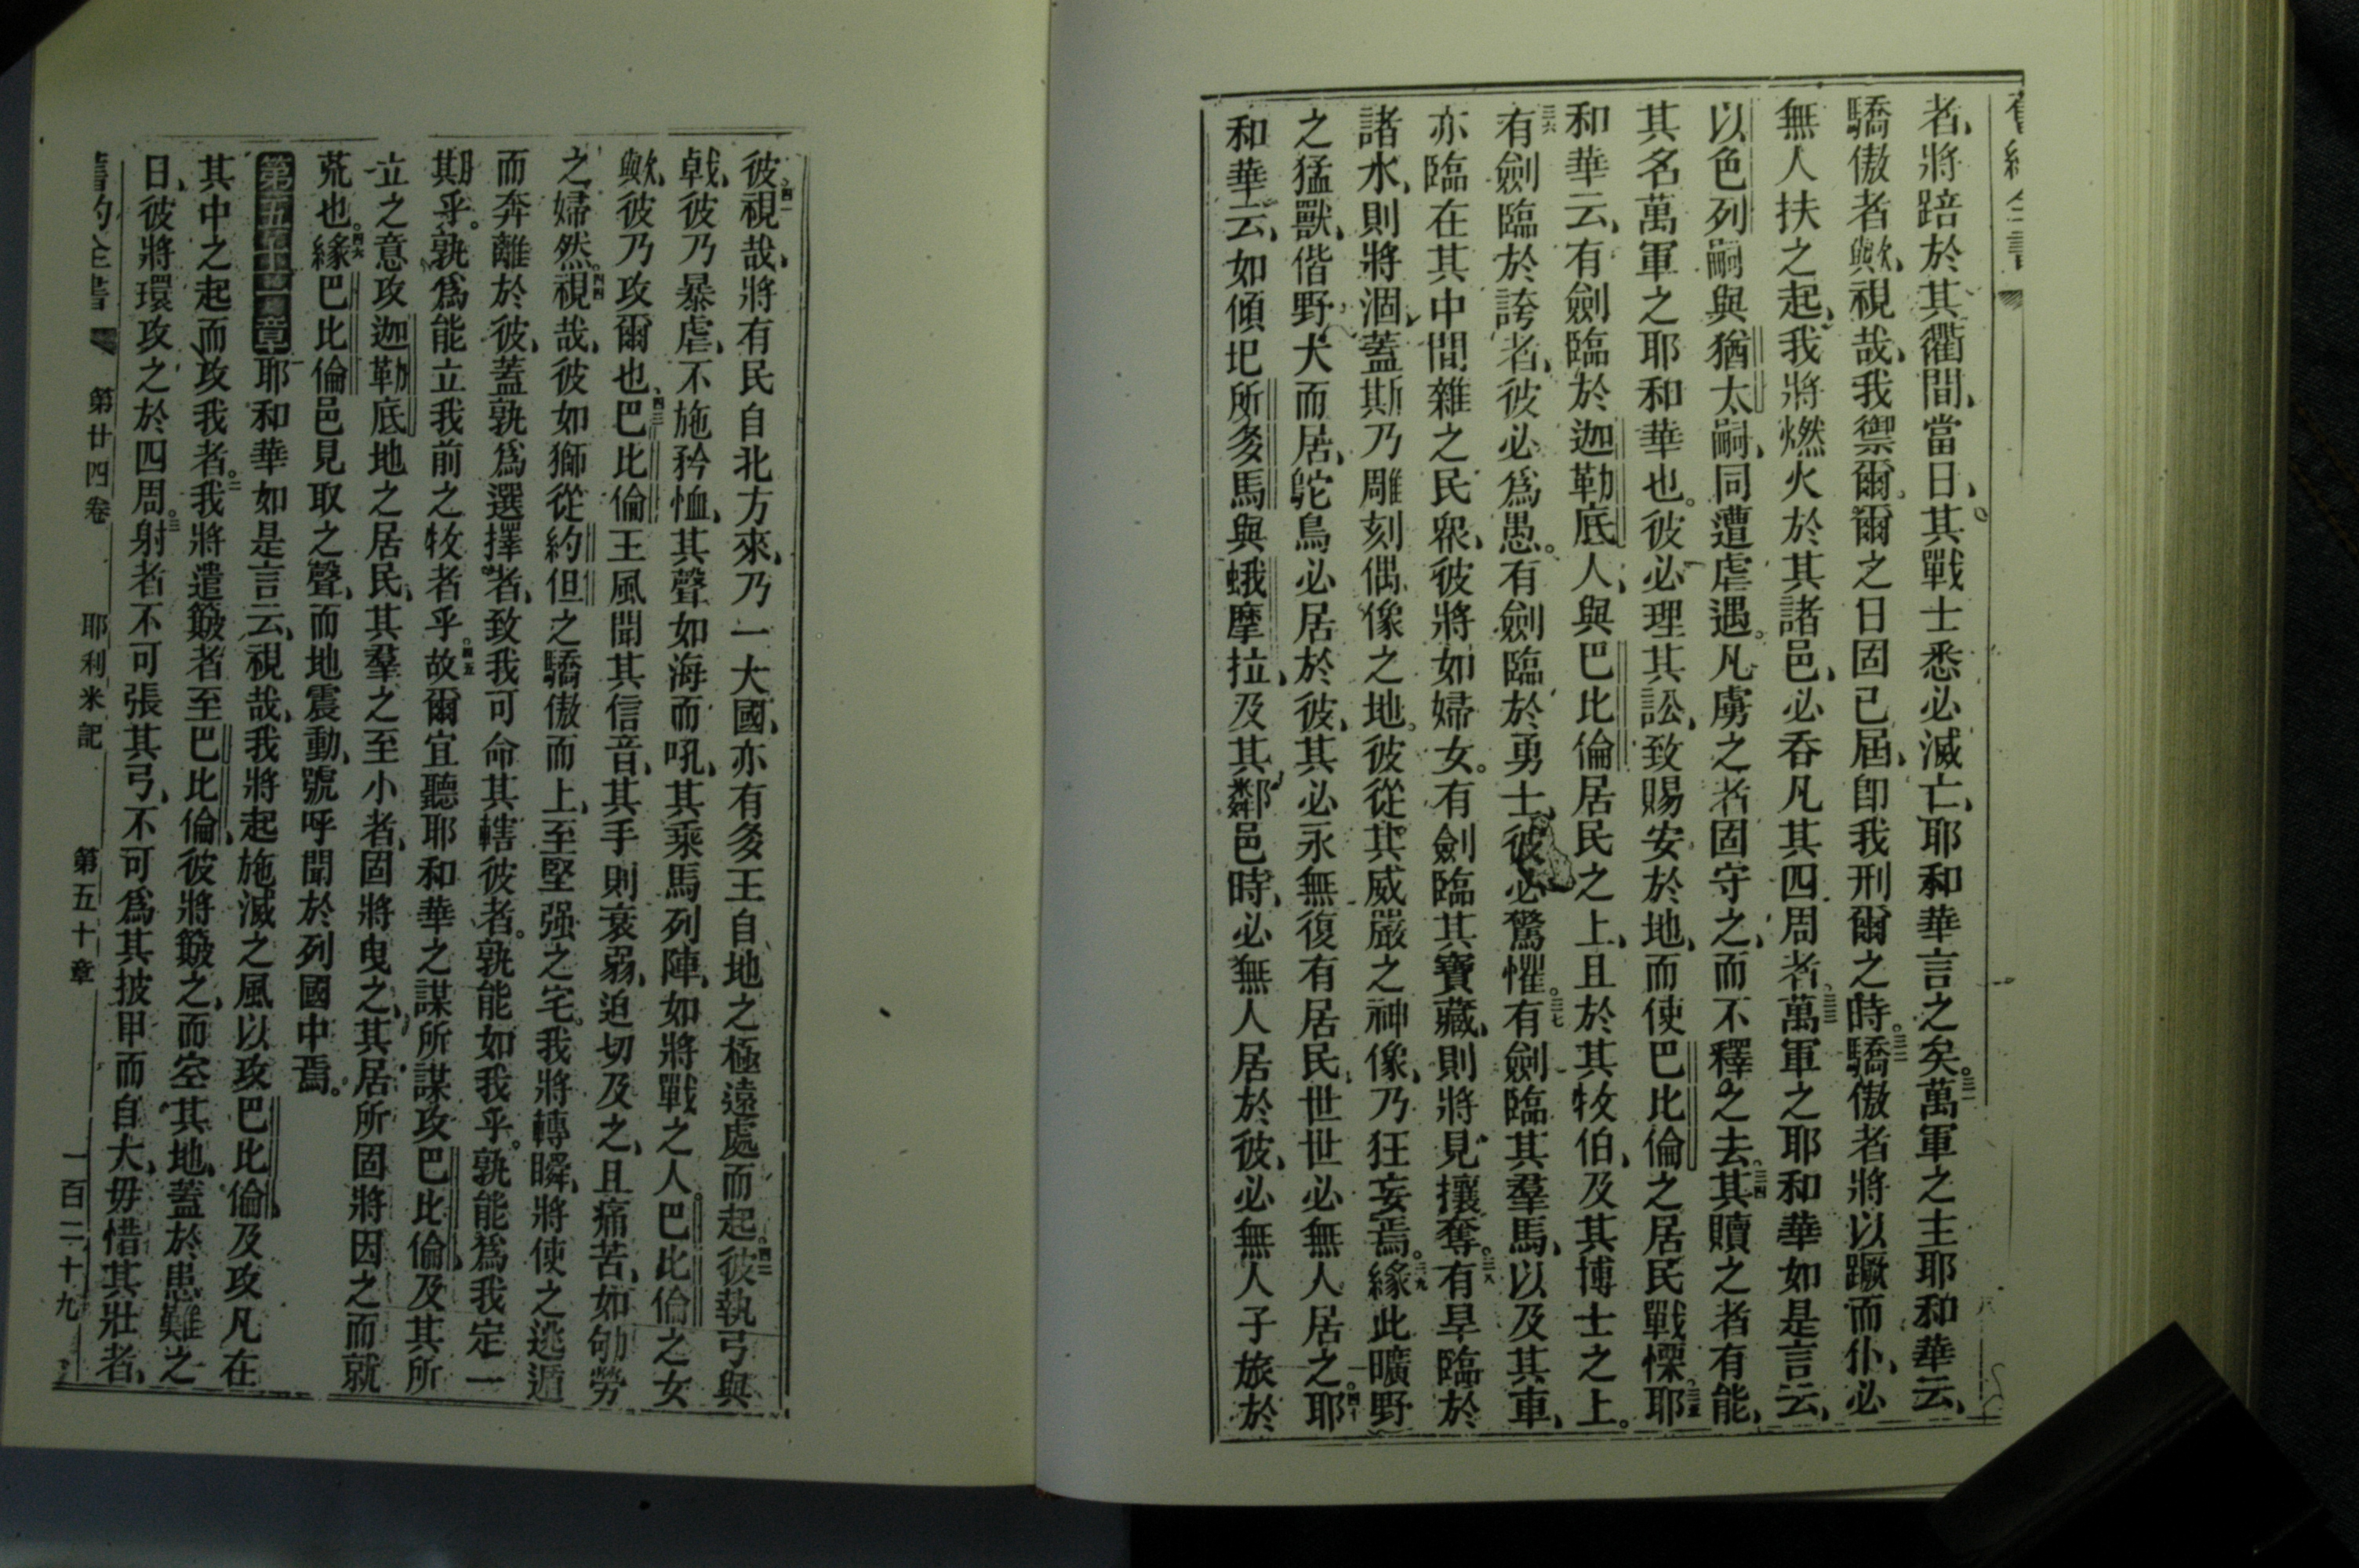 者、將踣於其衢間、當日、其戰士悉必滅亡、耶和華言之矣。三一萬軍之主耶和華云、
驕傲者歟、視哉、我禦爾。爾之日固已屆、卽我刑爾之時。三二驕傲者將以蹶而仆、必
無人扶之起、我將燃火於其諸邑、必吞凡其四周者、三三萬軍之耶和華如是言云、
以色列嗣與猶太嗣、同遭虐遇。凡虜之者固守之、而不釋之去。三四其贖之者有能、
其名萬軍之耶和華也。彼必理其訟、致賜安於地、而使巴比倫之居民戰慄。三五耶
和華云、有劍臨於迦勒底人、與巴比倫居民之上、且於其牧伯、及其博士之上。
三六有劍臨於誇者、彼必爲愚。有劍臨於勇士、彼必驚懼。三七有劍臨其羣馬、以及其車、
亦臨在其中間雜之民衆、彼將如婦女。有劍臨其寶藏、則將見攘奪。三八有旱臨於
諸水、則將涸、蓋斯乃雕刻偶像之地。彼從其威嚴之神像、乃狂妄焉。三九緣此曠野
之猛獸、偕野犬而居、鴕鳥必居於彼、其必永無復有居民、世世必無人居之。四十耶
和華云、如傾圯所多馬與蛾摩拉、及其鄰邑時、必無人居於彼、必無人子旅於
彼。四一視哉、將有民自北方來、乃一大國、亦有多王自地之極遠處而起。四二彼執弓與
戟、彼乃暴虐、不施矜恤、其聲如海而吼、其乘馬列陣、如將戰之人。巴比倫之女
歟、彼乃攻爾也、四三巴比倫王風聞其信音、其手則衰弱、迫切及之、且痛苦、如劬勞
之婦然。四四視哉、彼如獅從約但之驕傲而上、至堅强之宅。我將轉瞬、將使之逃遁
而奔離於彼、蓋孰爲選擇者、致我可命其轄彼者。孰能如我乎。孰能爲我定一
期乎。孰爲能立我前之牧者乎。四五故爾宜聽耶和華之謀所謀攻巴比倫、及其所
立之意攻迦勒底地之居民、其羣之至小者、固將曳之、其居所固將因之而就
荒也。四六緣巴比倫邑見取之聲、而地震動、號呼聞於列國中焉。
第五十一章耶和華如是言云、視哉、我將起施滅之風以攻巴比倫、及攻凡在
其中之起而攻我者。二我將遣簸者至巴比倫、彼將簸之、而空其地、蓋於患難之
日、彼將環攻之於四周。三射者不可張其弓、不可爲其披甲而自大、毋惜其壯者、
舊約全書 第廿四卷 耶利米記 第五十章 一百二十九